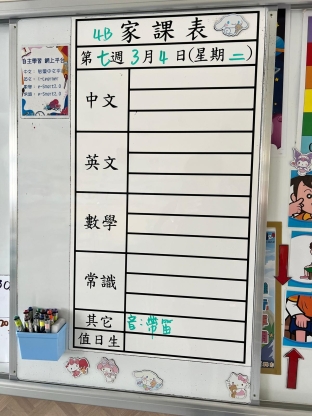 4B 家課表
第七週3月4日(星期二)
自主學習 網上平台
中文
英文
數學
常識
其它 音:帶笛
值日生